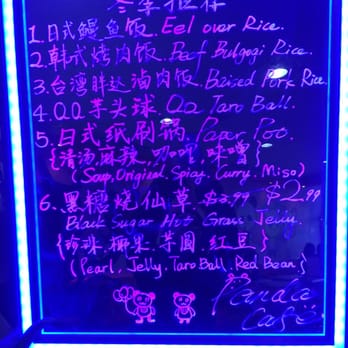 冬季推荐
1.日式鳗鱼饭. Eel over Rice.
2.韩式烤肉饭. Beef Bulgogi Rice.
3.台湾胖达卤肉饭. Braised Pork Rice.
4.QQ芋头球 QQ Taro Ball.
5.日式纸刷锅. Paper Poo.
{清汤.麻辣.咖哩.味噌}
(Soup, Original, Spicy, Curry, Miso)
6.黑糖烧仙草 $3.99 $2.99
Black Sugar Hot Grass Jelly.
{珍珠.椰果.芋圆.红豆}
(Pearl, Jelly. Taro Ball. Red Bean.)
Panda
Cafe